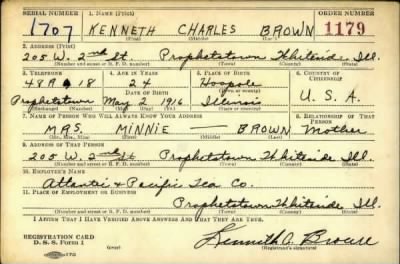 SERIAL NUMBER 1. NAME (Print) ORDER NUMBER
1707 KENNETH CHARLES BROWN 1179
(First) (Middle) (Last)
2. ADDRESS (Print)
205 W. 2nd St. Prophetstown Whiteside Ill.
(Number and street or R. F. D. number) (Town) (County) (State)
3. TELEPHONE 4. AGE IN YEARS 5. PLACE OF BIRTH 6. COUNTRY OF CITIZENSHIP
48R 18 24 Hoopole
(Town or county)
DATE OF BIRTH
Prophetstown May 2 1916 Illinois U. S. A.
(Exchange) (Number) (Mo.) (Day) (Yr.) (State or country)
7. NAME OF PERSON WHO WILL ALWAYS KNOW YOUR ADDRESS 8. RELATIONSHIP OF THAT PERSON
MRS. MINNIE — BROWN Mother
(Mr., Mrs., Miss) (First) (Middle) (Last)
9. ADDRESS OF THAT PERSON
205 W. 2nd St Prophetstown Whiteside Ill.
(Number and street or R. F. D. number) (Town) (County) (State)
10. EMPLOYER'S NAME
Atlantic & Pacific Tea Co.
11. PLACE OF EMPLOYMENT OR BUSINESS
Prophetstown Whiteside Ill.
(Number and street or R. F. D. number) (Town) (County) (State)
I AFFIRM THAT I HAVE VERIFIED ABOVE ANSWERS AND THAT THEY ARE TRUE.
REGISTRATION CARD
D. S. S. Form 1
(over)
Kenneth C. Brown
(Registrant's signature)